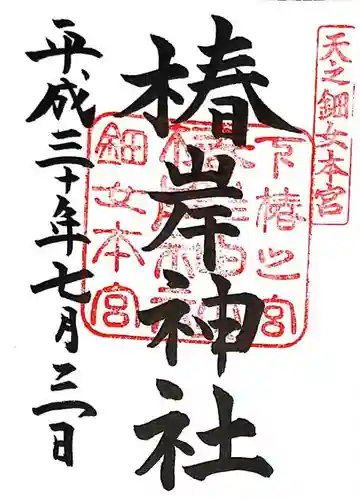 天之鈿女本宮
下椿之宮
椿岸神社
鈿女本宮
椿岸神社
平成三十年七月三日